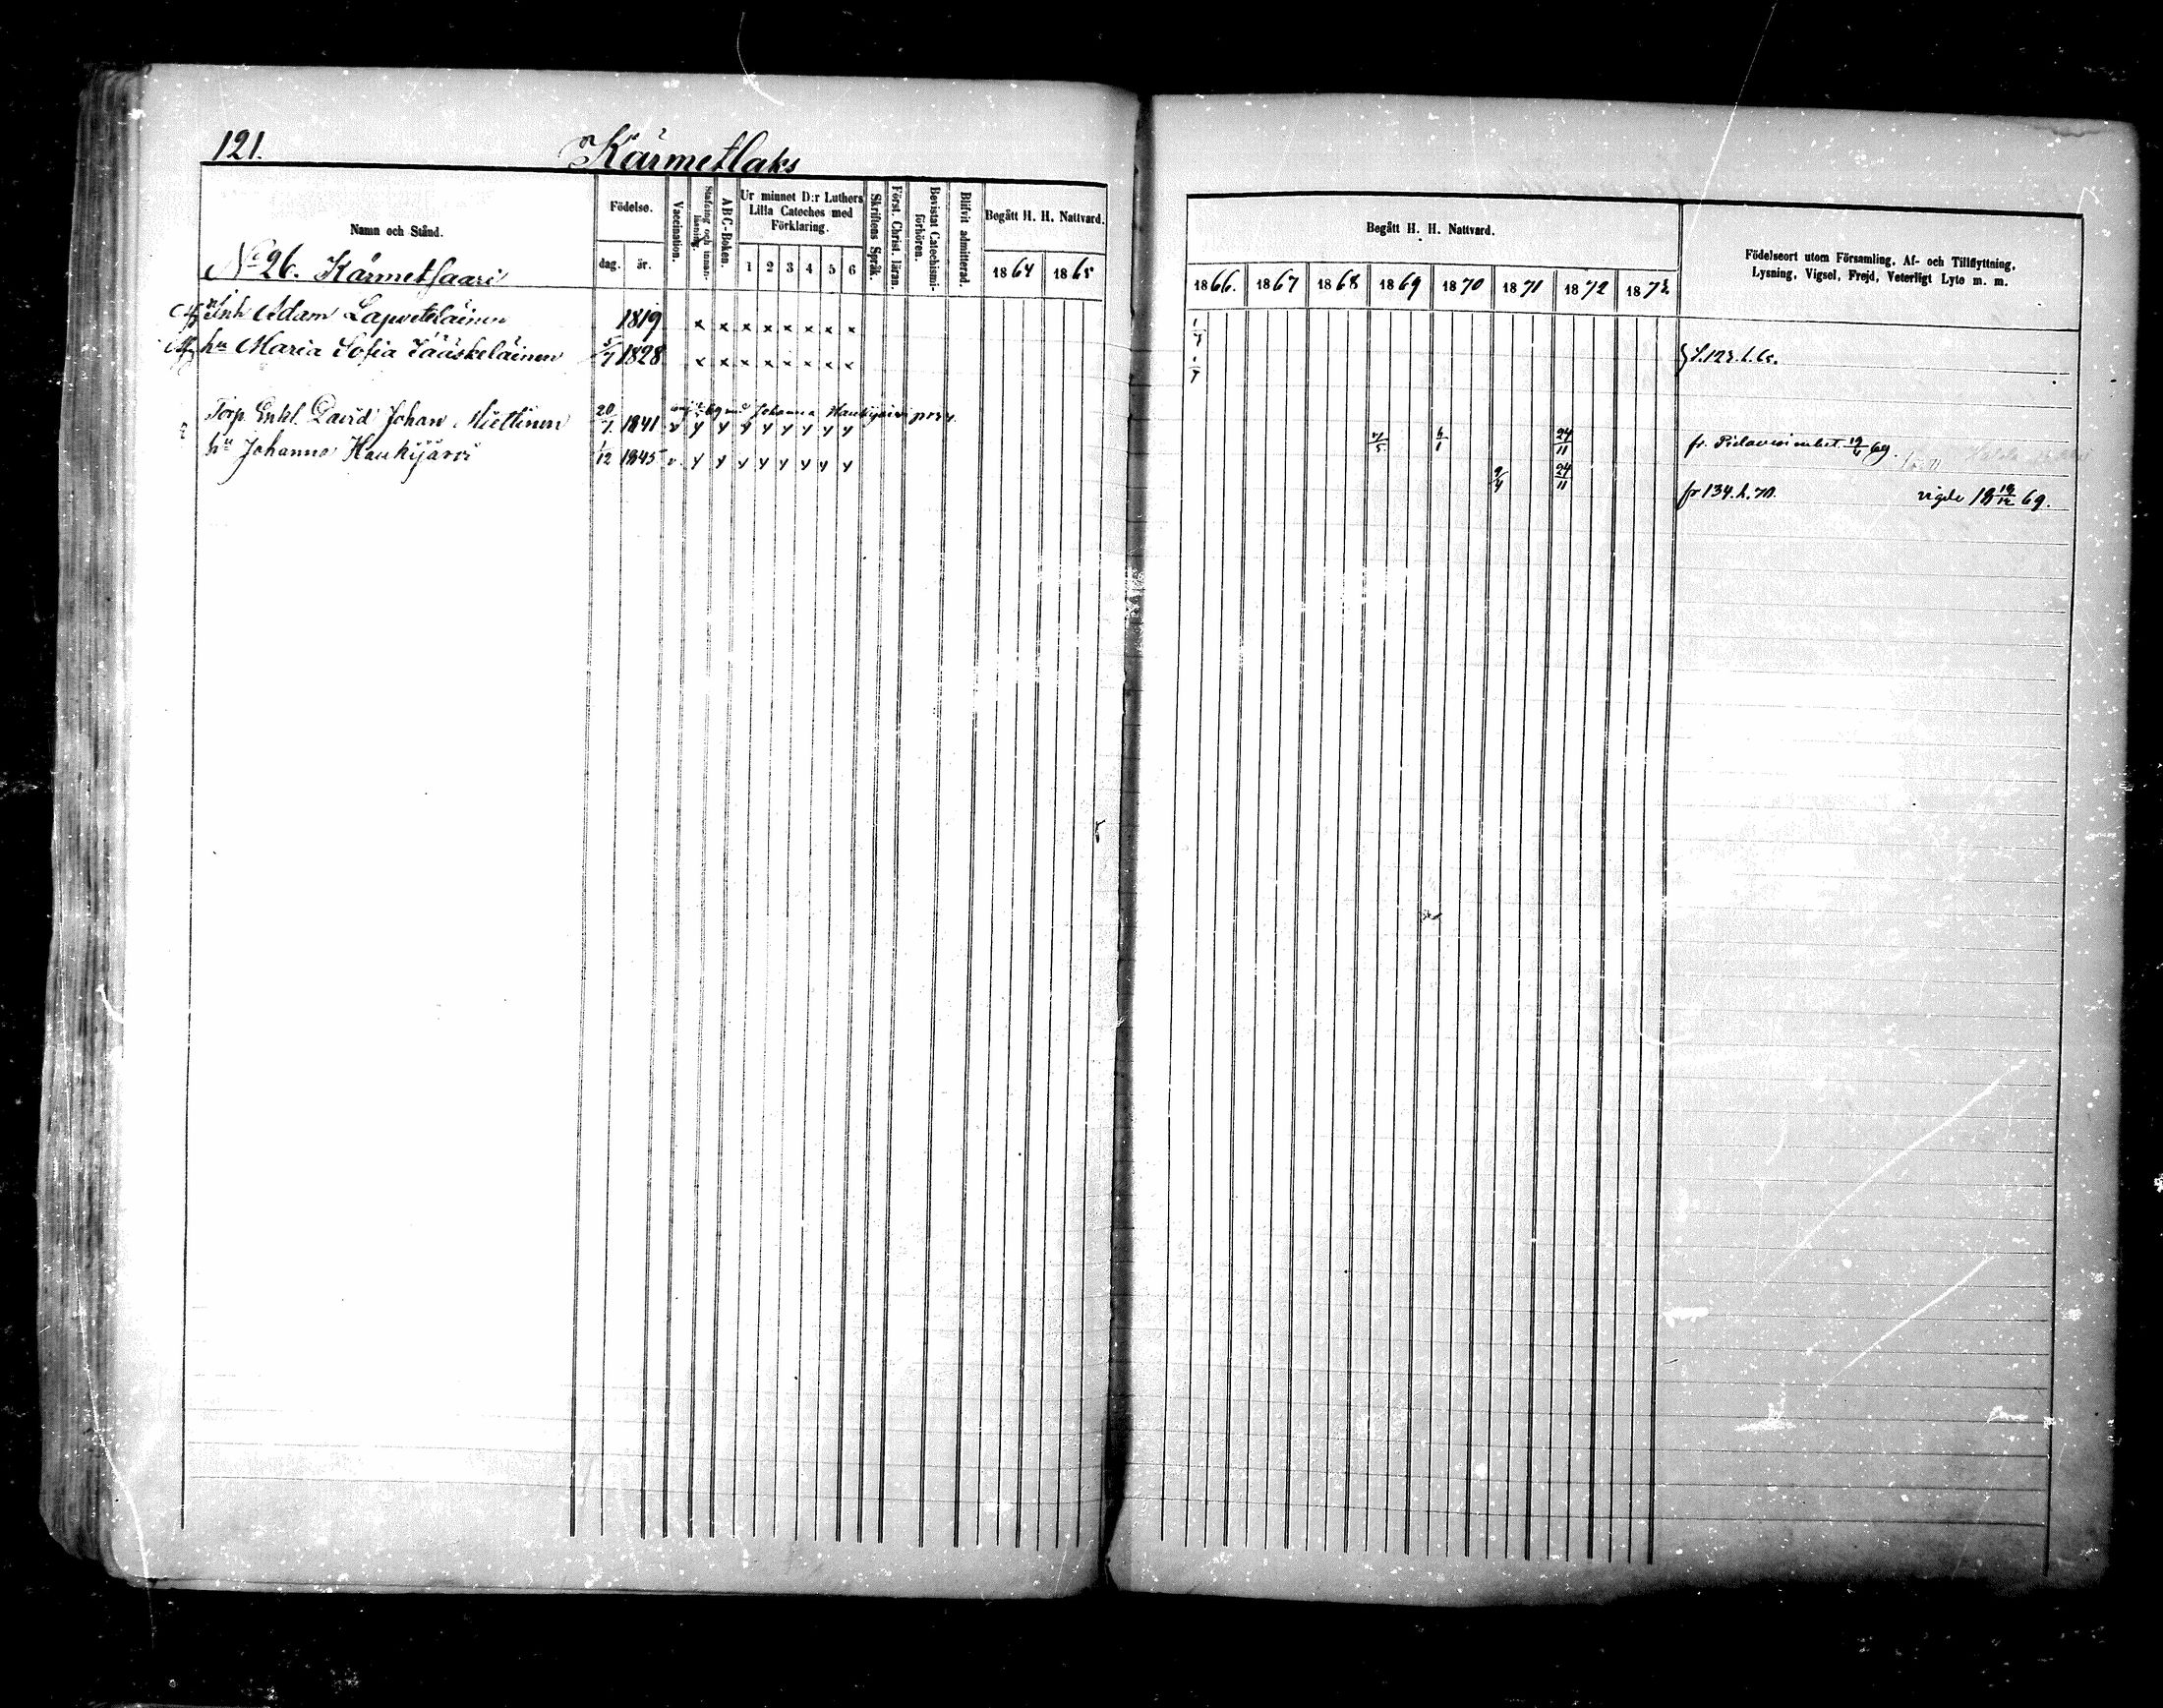 121.
Kärmetlaks
Namn och Stånd.
Födelse.
dag. år.
Vaccination.
Stafning och innanläsning.
ABC-Boken.
Ur minnet D:r Luthers Lilla Cateches med Förklaring.
1 2 3 4 5 6
Skriftens Språk.
Först. Christ. läran.
Bevistat Catechismiförhören.
Blifvit admitterad.
Begått H. H. Nattvard.
1864 1865
Begått H. H. Nattvard.
1866. 1867 1868 1869 1870 1871 1872 1873
Födelseort utom Församling, Af- och Tillflyttning,
Lysning, Vigsel, Frejd, Veterligt Lyte m. m.
No 26. Kärmetsaari
Inh Adam Lapveteläinen 1819 x x x x x x x x 1/7
hu Maria Sofia Jääskeläinen 5/7 1828 x x x x x x x x 1/7
Johanna Haukijärvi
Torp. Enkl. David Johan Miettinen 20/7 1841 v y y y y y y y y 6/1 24/11 fr. 19/6 69.
hu Johanna Haukijärvi 1/12 1845 v. y y y y y y y y 9/4 24/11 fr 134. h. 70. vigde 18 18/12 69.